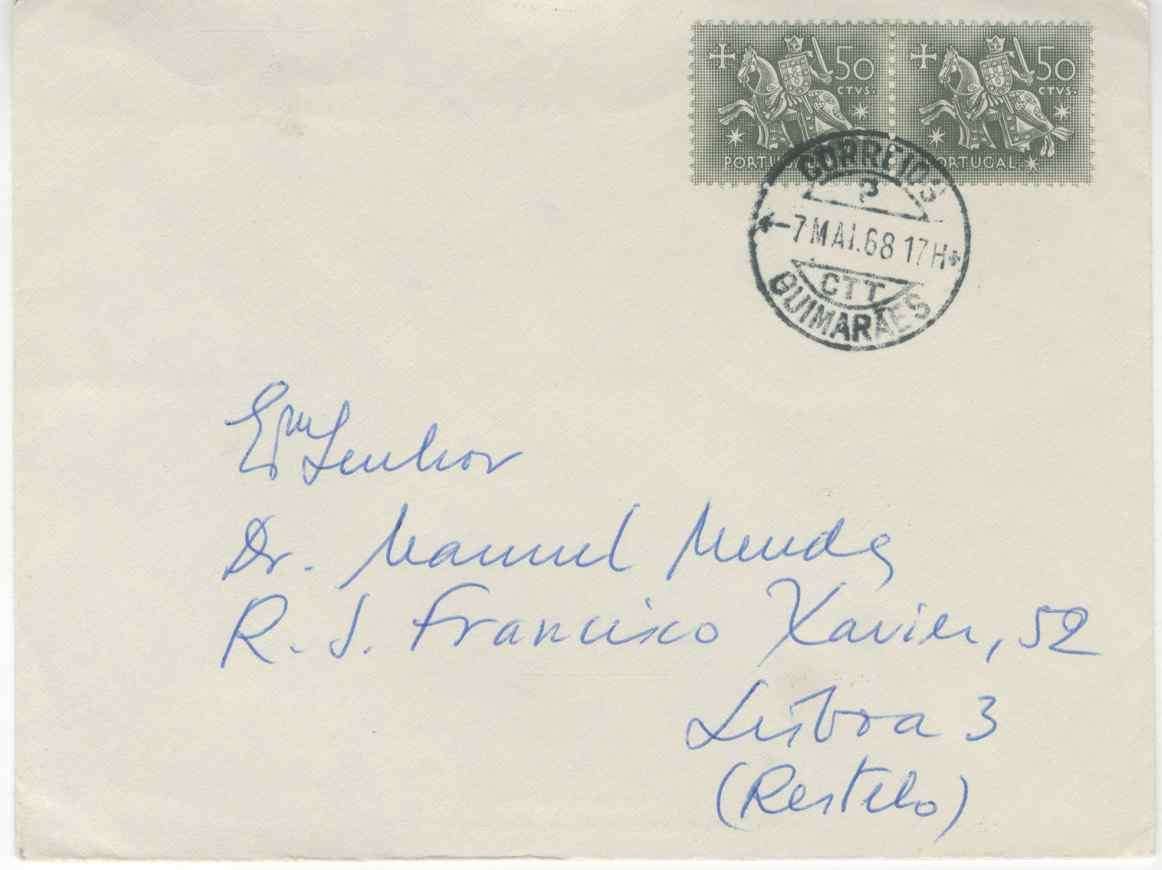 50 50
CTVS. CTVS.
PORTUGAL PORTUGAL
CORREIOS
2
-7 MAI.68 17H
CTT
GUIMARÃES
Exm Senhor
Dr. Manuel Mendes
R. S. Francisco Xavier, 52
Lisboa 3
(Restelo)